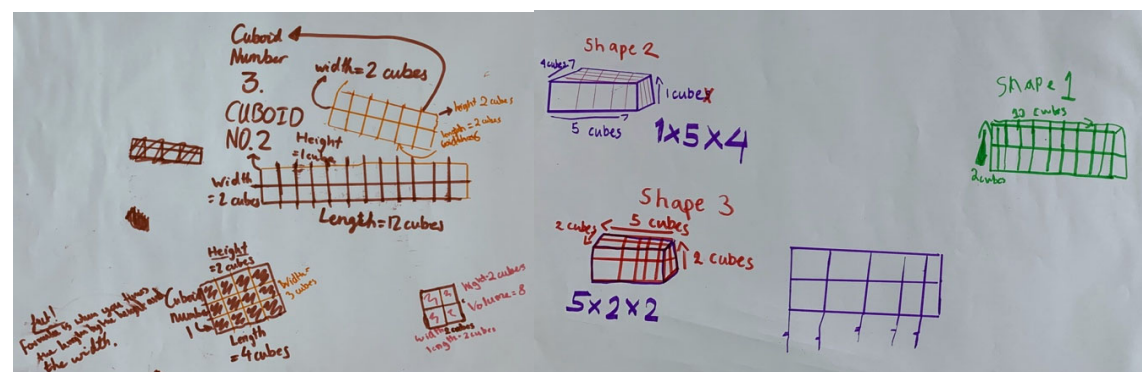 Cuboid
Number
3.
width=2 cubes
CUBOID
NO.2
Height
=1cube
height 2 cubes
length=2 cubes
width=6
width
=2 cubes
Length=12 cubes
Height
=2 cubes
Width=
3 cubes
Cuboid
number
1
Length
=4cubes
formula is when you times
the length by the height and
the width.
height=2 cubes
Volume=8
width=2cubes
length=2cubes
Shape 2
4cubes
1cube
5 cubes
1x5x4
Shape 3
5 cubes
2 cubes
2 cubes
5x2x2
Shape 1
cubes
2cubes